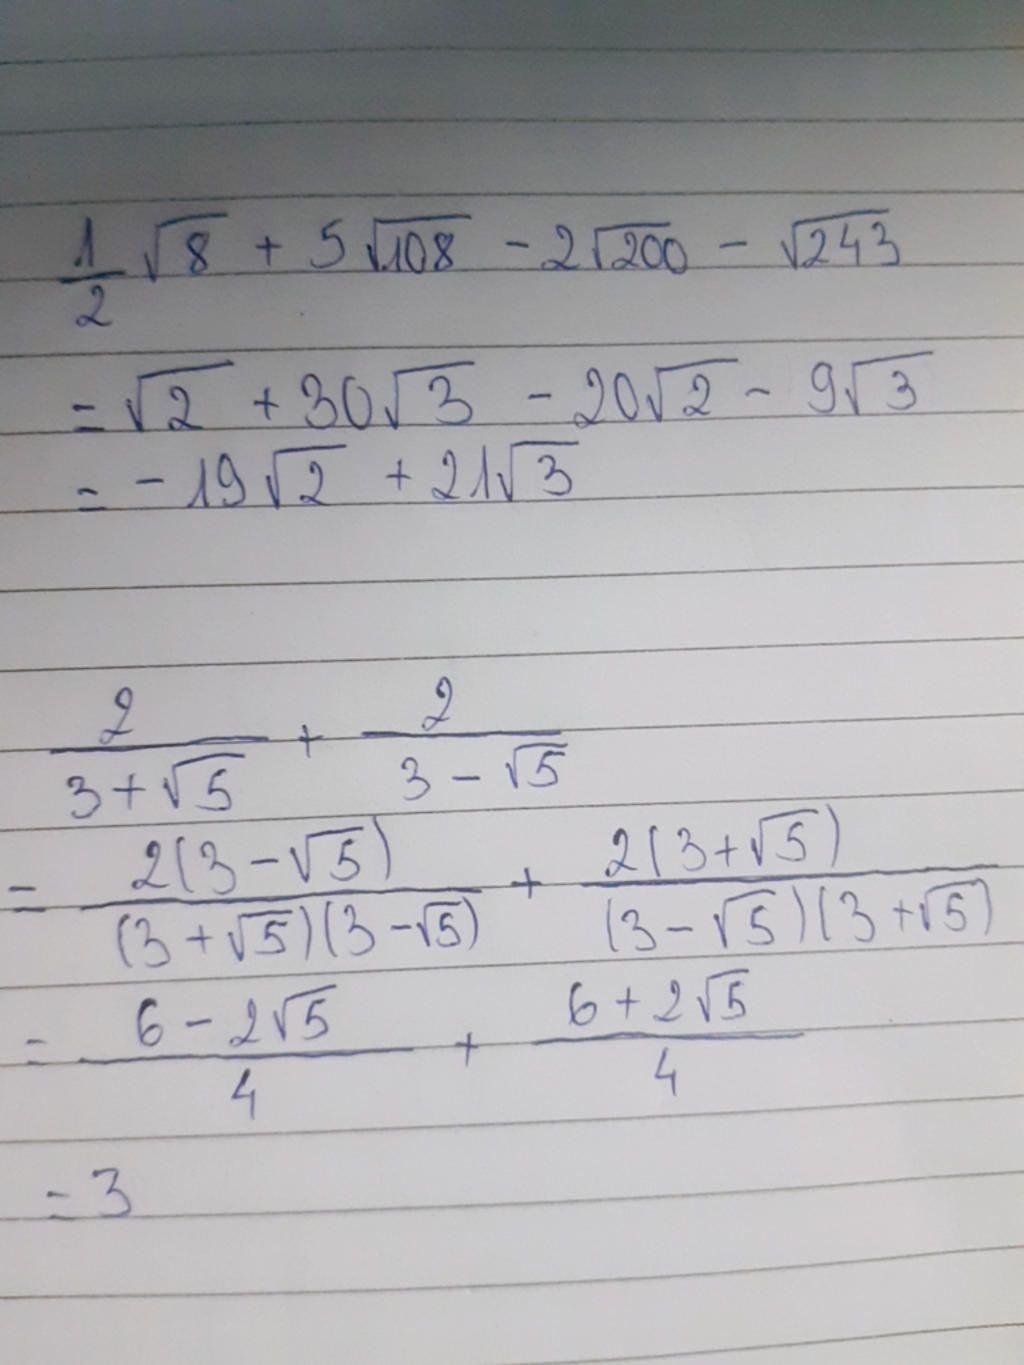 1/2 √8 + 5√108 - 2√200 - √243
= √2 + 30√3 - 20√2 - 9√3
= -19√2 + 21√3
2/(3+√5) + 2/(3-√5)
= 2(3-√5)/((3+√5)(3-√5)) + 2(3+√5)/((3-√5)(3+√5))
= (6-2√5)/4 + (6+2√5)/4
= 3